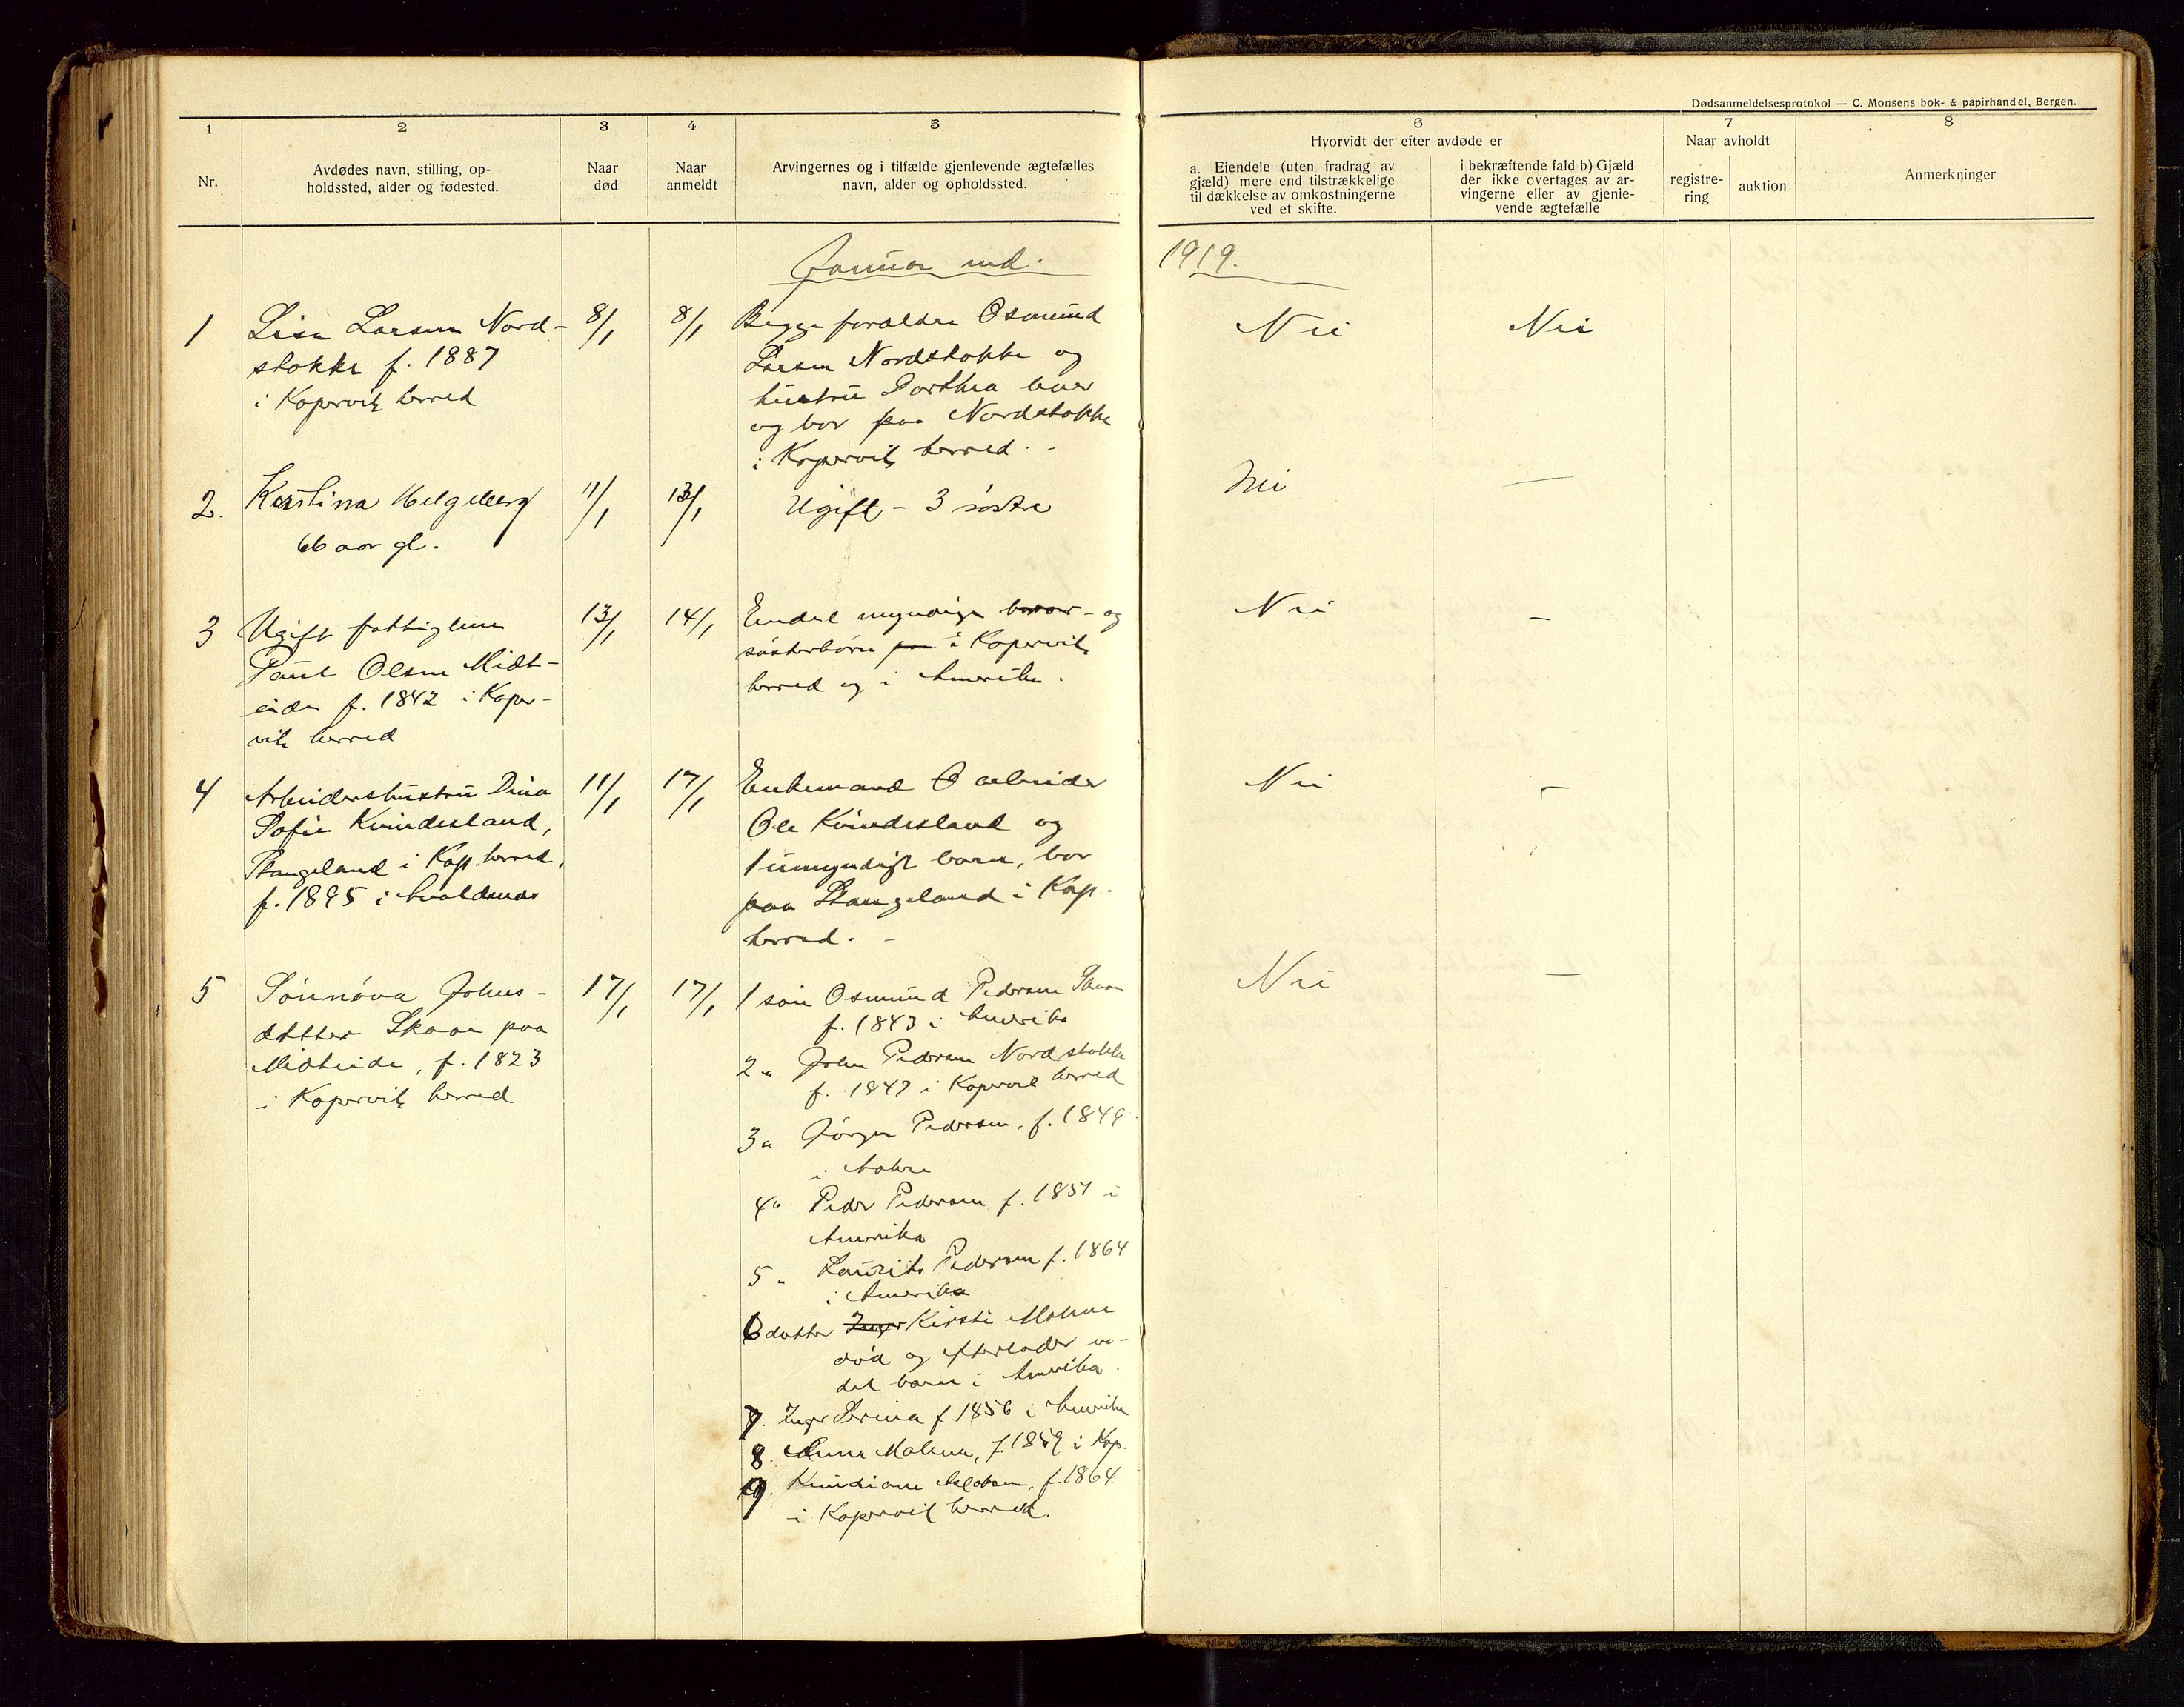 Dødsanmeldelsesprotokol — C. Monsens bok- & papirhandel, Bergen.
1 2 3 4 5 6 7 8
Nr.
Avdødes navn, stilling, op-
holdssted, alder og fødested.
Naar
død
Naar
anmeldt
Arvingernes og i tilfælde gjenlevende ægtefælles
navn, alder og opholdssted.
Hvorvidt der efter avdøde er
a. Eiendele (uten fradrag av
gjæld) mere end tilstrækkelige
til dækkelse av omkostningerne
ved et skifte.
i bekræftende fald b) Gjæld
der ikke overtages av ar-
vingerne eller av gjenle-
vende ægtefælle
Naar avholdt
registre-
ring
auktion
Anmerkninger
Januar md. 1919.
1
Lisa Larsen Nord-
stokke f. 1887
i Kopervik herred
8/1
8/1
Begge forældre Osmund
Larsen Nordstokke og
hustru Dorthea lever
og bor paa Nordstokke
i Kopervik herred. -
Nei
Nei
2.
Kristina Helgeberg
66 aar gl.
11/1
13/1
Ugift - 3 søstre
Nei
—
3
Ugift fattiglem
Paul Olsen Midt-
eide f. 1842 i Koper-
vik herred
13/1
14/1
Endel myndige bror- og
søsterbørn paa i Kopervik
herred og i Amerika.
Nei
-
4
Arbeiderhustru Dina
Sofie Kvindesland,
Stangeland i Kop. herred,
f. 1895 i Avaldsnes
11/1
17/1
Enkemand O arbeider
Ole Kvindesland og
1 umyndigt barn, bor
paa Stangeland i Kop.
herred. -
Nei
-
5
Sønnøva Johns-
datter Skaar paa
Midteide, f. 1823
i Kopervik herred
17/1
17/1
1 søn Osmund Pedersen Skaar
f. 1843 i Amerika
2 " John Pedersen Nordstokke
f. 1847 i Kopervik herred
3 " Jørgen Pedersen, f. 1849
i Aakre
4 " Peder Pedersen f. 1851 i
Amerika
5 " Laurits Pedersen f. 1864
i Amerika
6 datter Inger Kirsti Malene
død og efterlader en-
del barn i Amerika.
7. Inger Serina f. 1856 i Amerika
8. Anna Malene, f. 1859 i Kop.
9. Kundiane, f. 1864
i Kopervik herred.
Nei
—